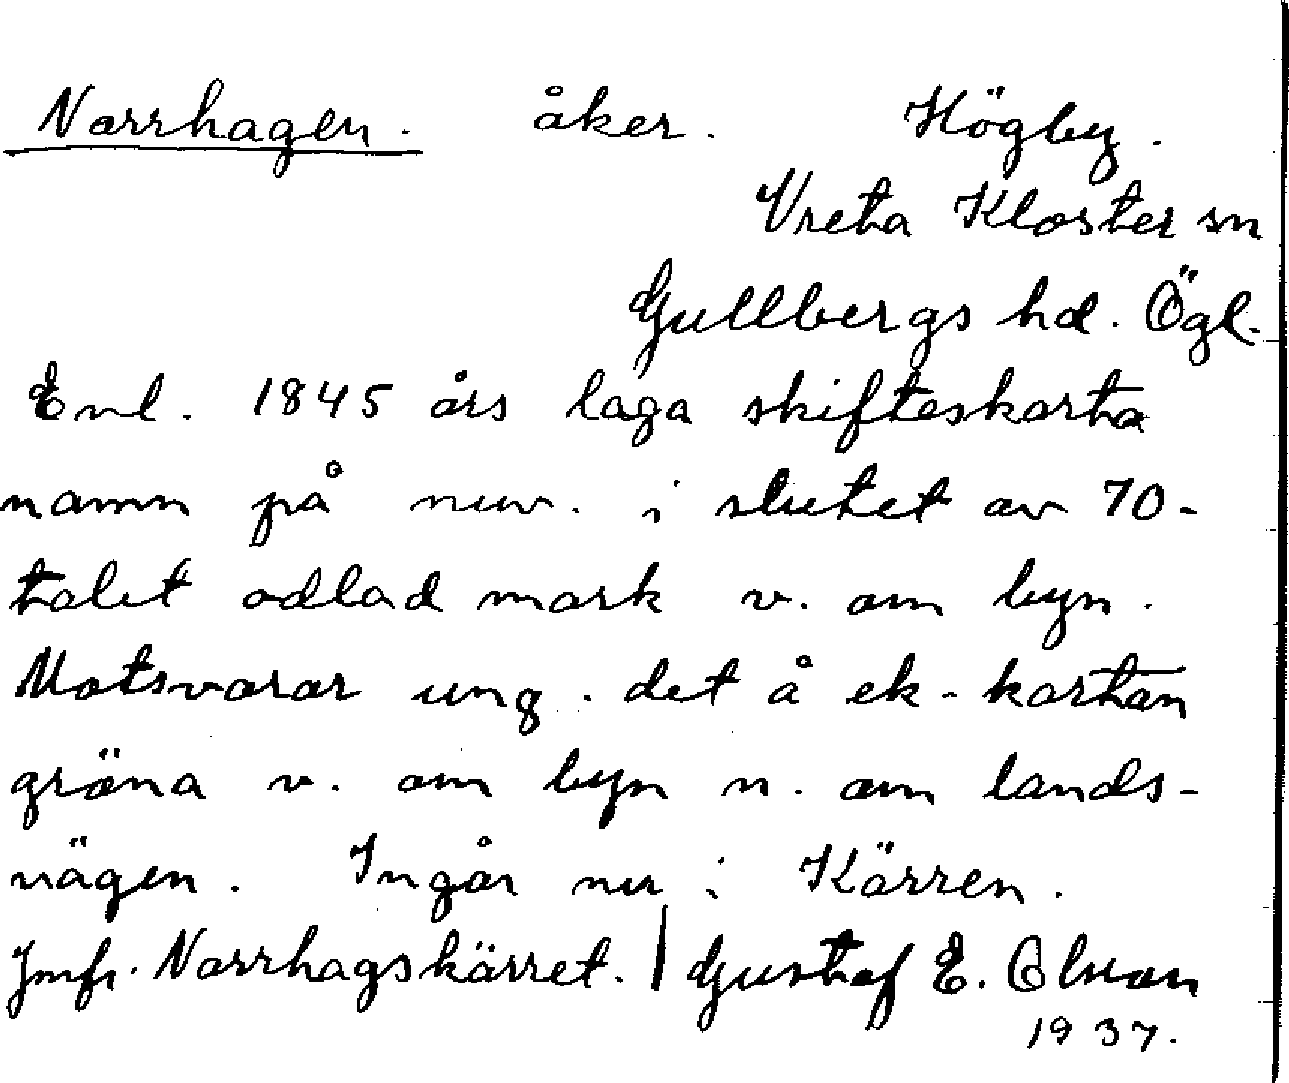 Norrhagen. åker. Högby.
Vreta Kloster sn
Gullbergs hd. Ögl.
Enl. 1845 års laga skifteskarta
namn på nuv. i slutet av 70-
talet odlad mark v. om byn.
Motsvarar ung. det å ek-kartan
gröna v. om byn n. om lands-
vägen. Ingår nu i Kärren.
Jmfr. Norrhagskärret. | Gustaf E. Olson
1937.